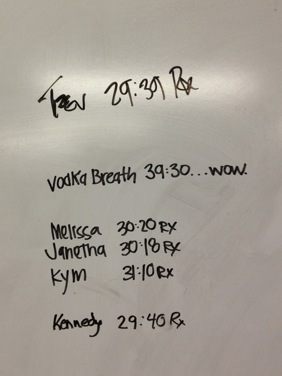 Trev 29:39 Rx
Vodka Breath 39:30...wow.
Melissa 30:20 Rx
Janetha 30:18 Rx
Kym 31:10 Rx
Kennedy 29:40 Rx